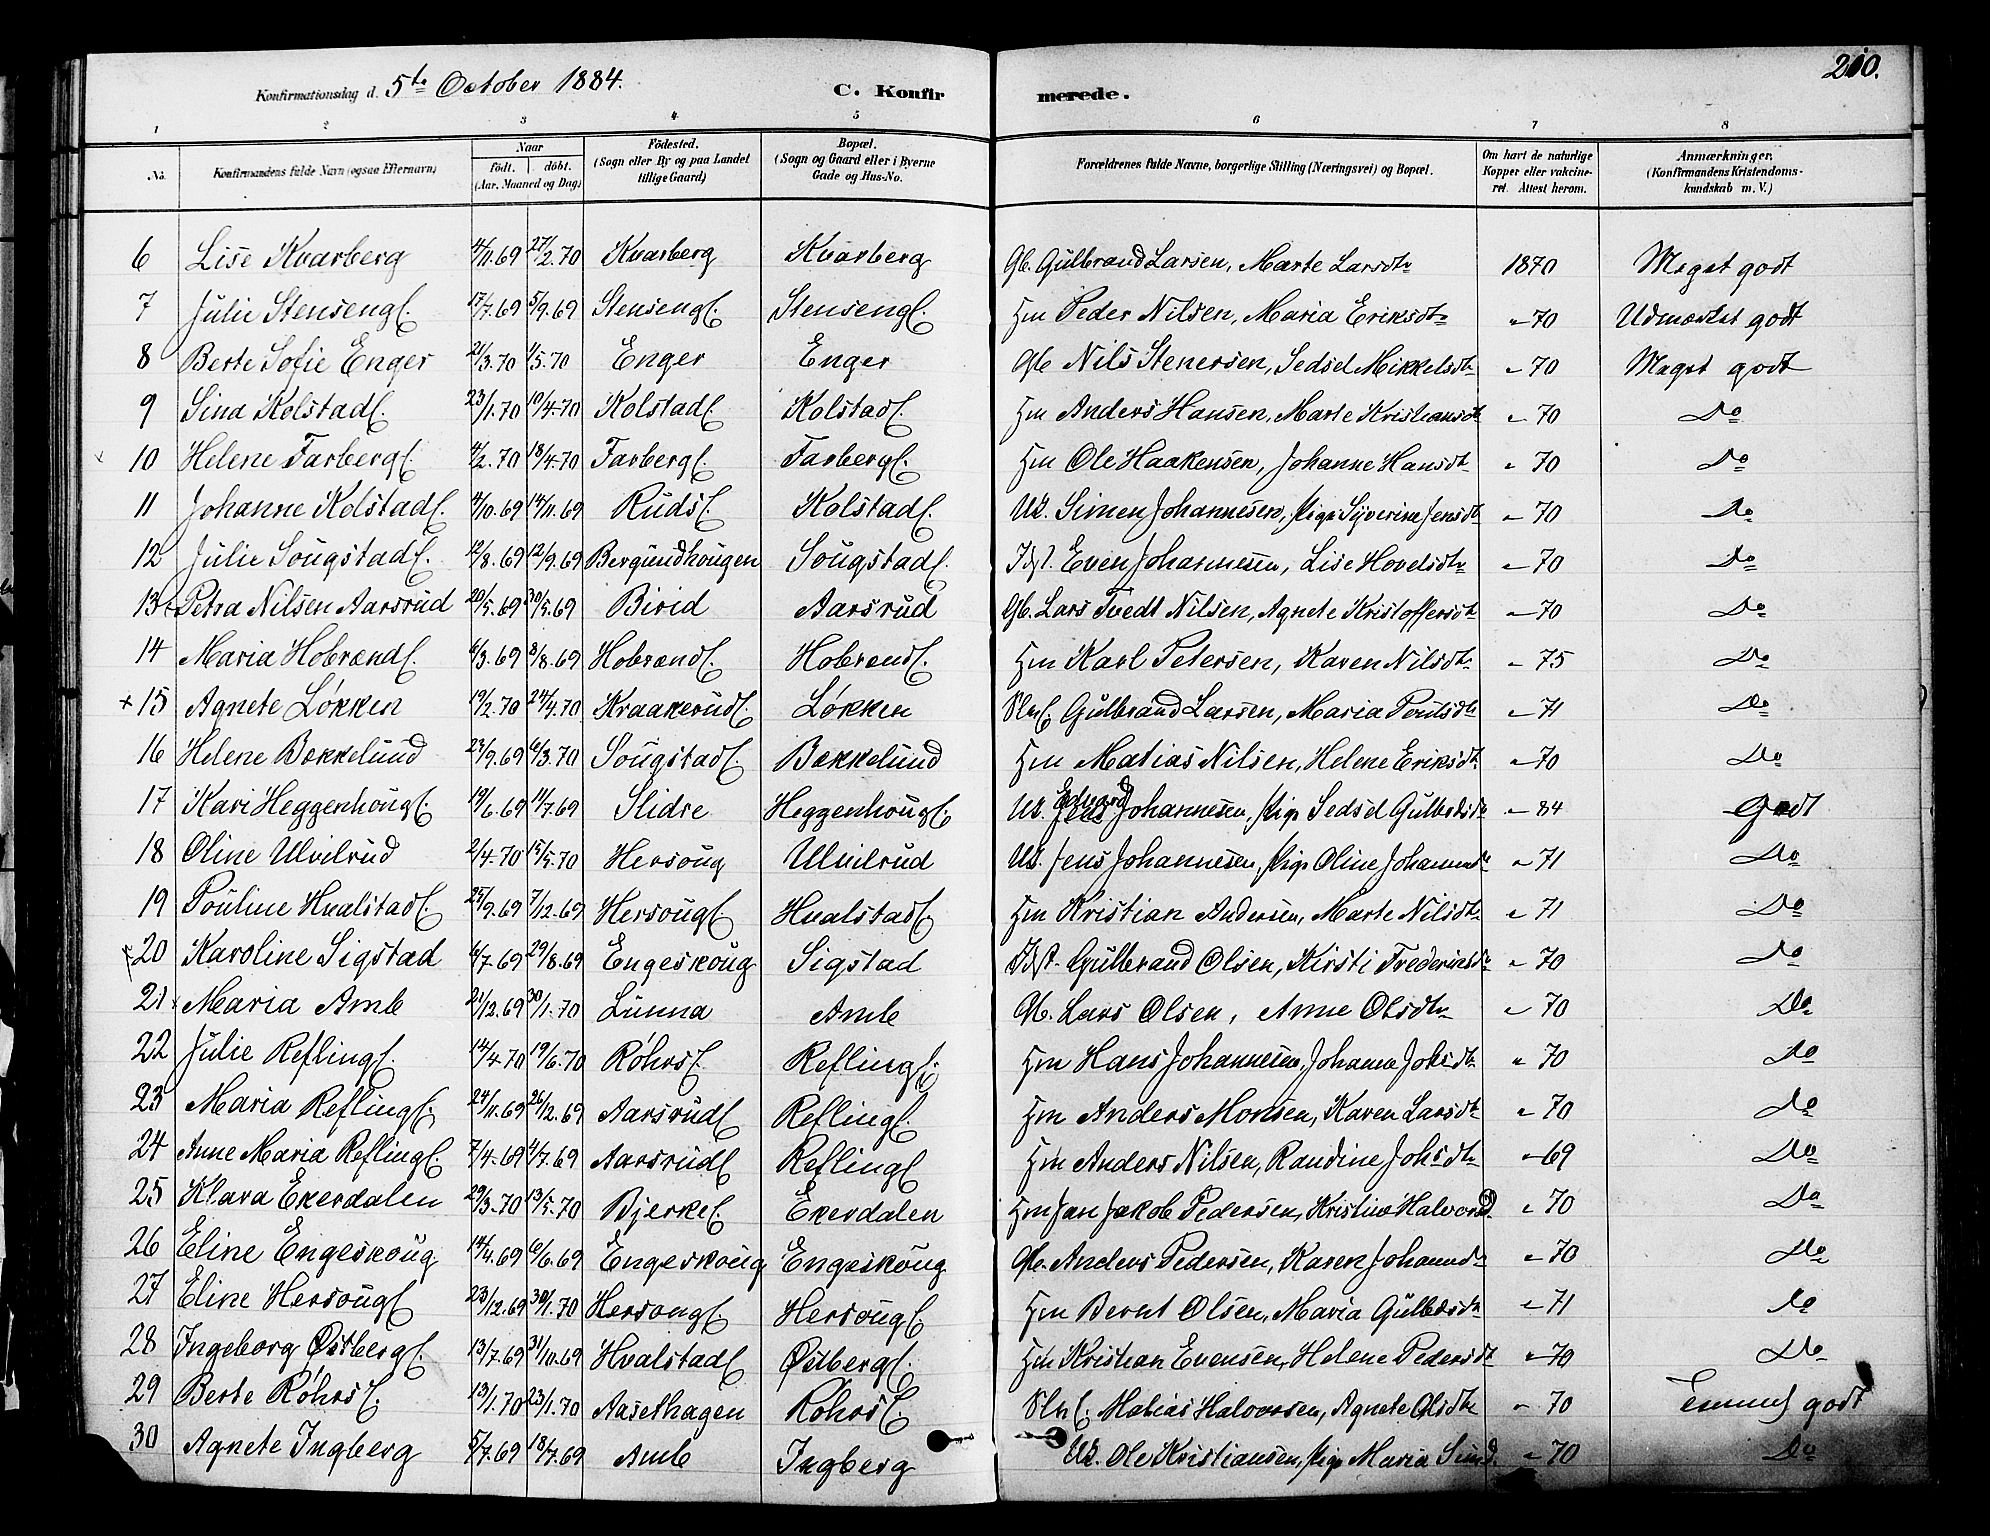 Konfirmationsdag d. 5te October 1884. C. Konfirmerede. 210.
1 2 3 4 5 6 7 8
No. Konfirmandens fulde Navn (ogsaa Efternavn) Naar født. døbt. (Aar, Maaned og Dag) Födested. (Sogn eller By og paa Landet tillige Gaard) Bopæl. (Sogn og Gaard eller i Byerne Gade og Hus-No. Forældrenes fulde Navne, borgerlige Stilling (Næringsvei) og Bopæl. Om havt de naturlige Kopper eller vakcineret. Attest herom. Anmærkninger. (Konfirmandens Kristendomskundskab m. V.)
6 Lise Kvarberg 4/11.69 27/2.70 Kvarberg Kvarberg Gb. Gulbrand Larsen, Marte Larsdtr 1870 Meget godt
7 Julie Stensengf. 17/7.69 5/9.69 Stensengf. Stensengf. Hm Peder Nilsen, Maria Eriksdtr " 70 Udmærket godt
8 Berte Sofie Enger 21/3.70 1/5.70 Enger Enger Gb Nils Stenersen, Sedsel Mikkelsdtr " 70 Meget godt
9 Sina Kolstadf. 23/1.70 10/4.70 Kolstadf. Kolstadf. Hm Anders Hansen, Marte Kristiansdtr " 70 Do
10 Helene Farbergf. 4/2.70 18/4.70 Farbergf. Farbergf. Hm Ole Haakensen, Johanne Hansdtr " 70 Do
11 Johanne Kolstadf. 4/10.69 14/11.69 Rudsf. Kolstadf. Uk. Simen Johannesen, Pige Syverine Jensdtr " 70 Do
12 Julie Sougstadf. 12/8.69 12/9.69 Bergundhougen Sougstadf. Idst. Even Johannesen, Lise Hovelsdtr " 70 Do
13 Petra Nilsen Aarsrud 20/5.69 30/5.69 Birid Aarsrud Gb. Lars Tvedt Nilsen, Agnete Kristoffersdtr " 70 Do
14 Maria Hobrændf. 6/3.69 8/8.69 Hobrændf. Hobrændf. Hm Karl Petersen, Karen Nilsdtr " 75 Do
+ 15 Agnete Løkken 19/2.70 24/4.70 Kraakerudf. Løkken Gulbrand Larsen, Maria Poulsdtr " 71 Do
16 Helene Bækkelund 23/9.69 6/3.70 Sougstadf. Bækkelund Hm Matias Nilsen, Helene Eriksdtr " 70 Do
17 Kari Heggenhougf. 19/6.69 11/7.69 Slidre Heggenhougf. Uk. Edvard Johannesen, Pige Sedsel Gulbrdsdtr " 84 Godt
18 Oline Ulvilrud 2/4.70 15/5.70 Hersoug Ulvilrud Uk. Jens Johannesen, Pige Oline Johannsdtr " 71 Do
19 Pouline Hvalstadf. 25/9.69 7/12.69 Hersougf. Hvalstadf. Hm Kristian Andersen, Marte Nilsdtr " 71 Do
20 Karoline Sigstad 6/7.69 29/8.69 Engeskoug Sigstad Idst. Gulbrand Olsen, Kirsti Frederiksdtr " 70 Do
21 Maria Amb 21/12.69 30/1.70 Lunna Amb Gb. Lars Olsen, Anne Olsdtr " 70 Do
22 Julie Reflingf. 14/4.70 19/6.70 Røhrsf. Reflingf. Hm Hans Johannesen, Johanne Johsdtr " 70 Do
23 Maria Reflingf. 24/11.69 26/12.69 Aarsrudf. Reflingf. Hm Anders Monsen, Karen Larsdtr " 70 Do
24 Anne Maria Reflingf. 7/4.69 4/7.69 Aarsrudf. Reflingf. Hm Anders Nilsen, Randine Johsdtr " 69 Do
25 Klara Ekerdalen 29/3.70 13/5.70 Bjerkef. Ekerdalen Hm Jan Jakob Pedersen, Kristine Halvorsd. " 70 Do
26 Eline Engeskoug 14/4.69 6/6.69 Engeskoug Engeskoug Gb. Anders Pedersen, Karen Johannsdtr " 70 Do
27 Eline Hersougf. 23/12.69 30/1.70 Hersougf. Hersougf. Hm Bernt Olsen, Maria Gulbrdsdtr " 71 Do
28 Ingeborg Østbergf. 13/7.69 31/10.69 Hvalstadf. Østbergf. Hm Kristian Evensen, Helene Pedersdtr " 70 Do
29 Berte Røhrsf. 13/1.70 23/1.70 Aasethagen Røhrsf. Matias Halvorsen, Agnete Olsdtr " 70 Temmel godt
30 Agnete Ingberg 5/7.69 18/7.69 Amb Ingberg Uk. Ole Kristiansen, Pige Maria Simd. " 70 Do